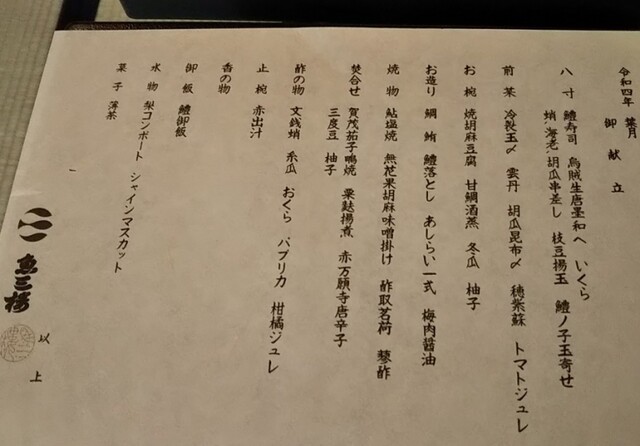 令和四年 葉月
御献立
八寸 鱧寿司 烏賊生唐墨和へ いくら
蛸 海老 胡瓜串差し 枝豆揚玉 鱧ノ子玉寄せ
前菜 冷製玉〆 雲丹 胡瓜昆布〆 穂紫蘇 トマトジュレ
お椀 焼胡麻豆腐 甘鯛酒蒸 冬瓜 柚子
お造り 鯛 鮪 鱧落とし あしらい一式 梅肉醤油
焼物 鮎塩焼 無花果胡麻味噌掛け 酢取茗荷 蓼酢
焚合せ 賀茂茄子鴫焼 粟麩揚煮 赤万願寺唐辛子
三度豆 柚子
酢の物 文銭蛸 糸瓜 おくら パプリカ 柑橘ジュレ
止椀 赤出汁
香の物
御飯 鱧御飯
水物 梨コンポート シャインマスカット
菓子 薄茶
以上
魚三楼